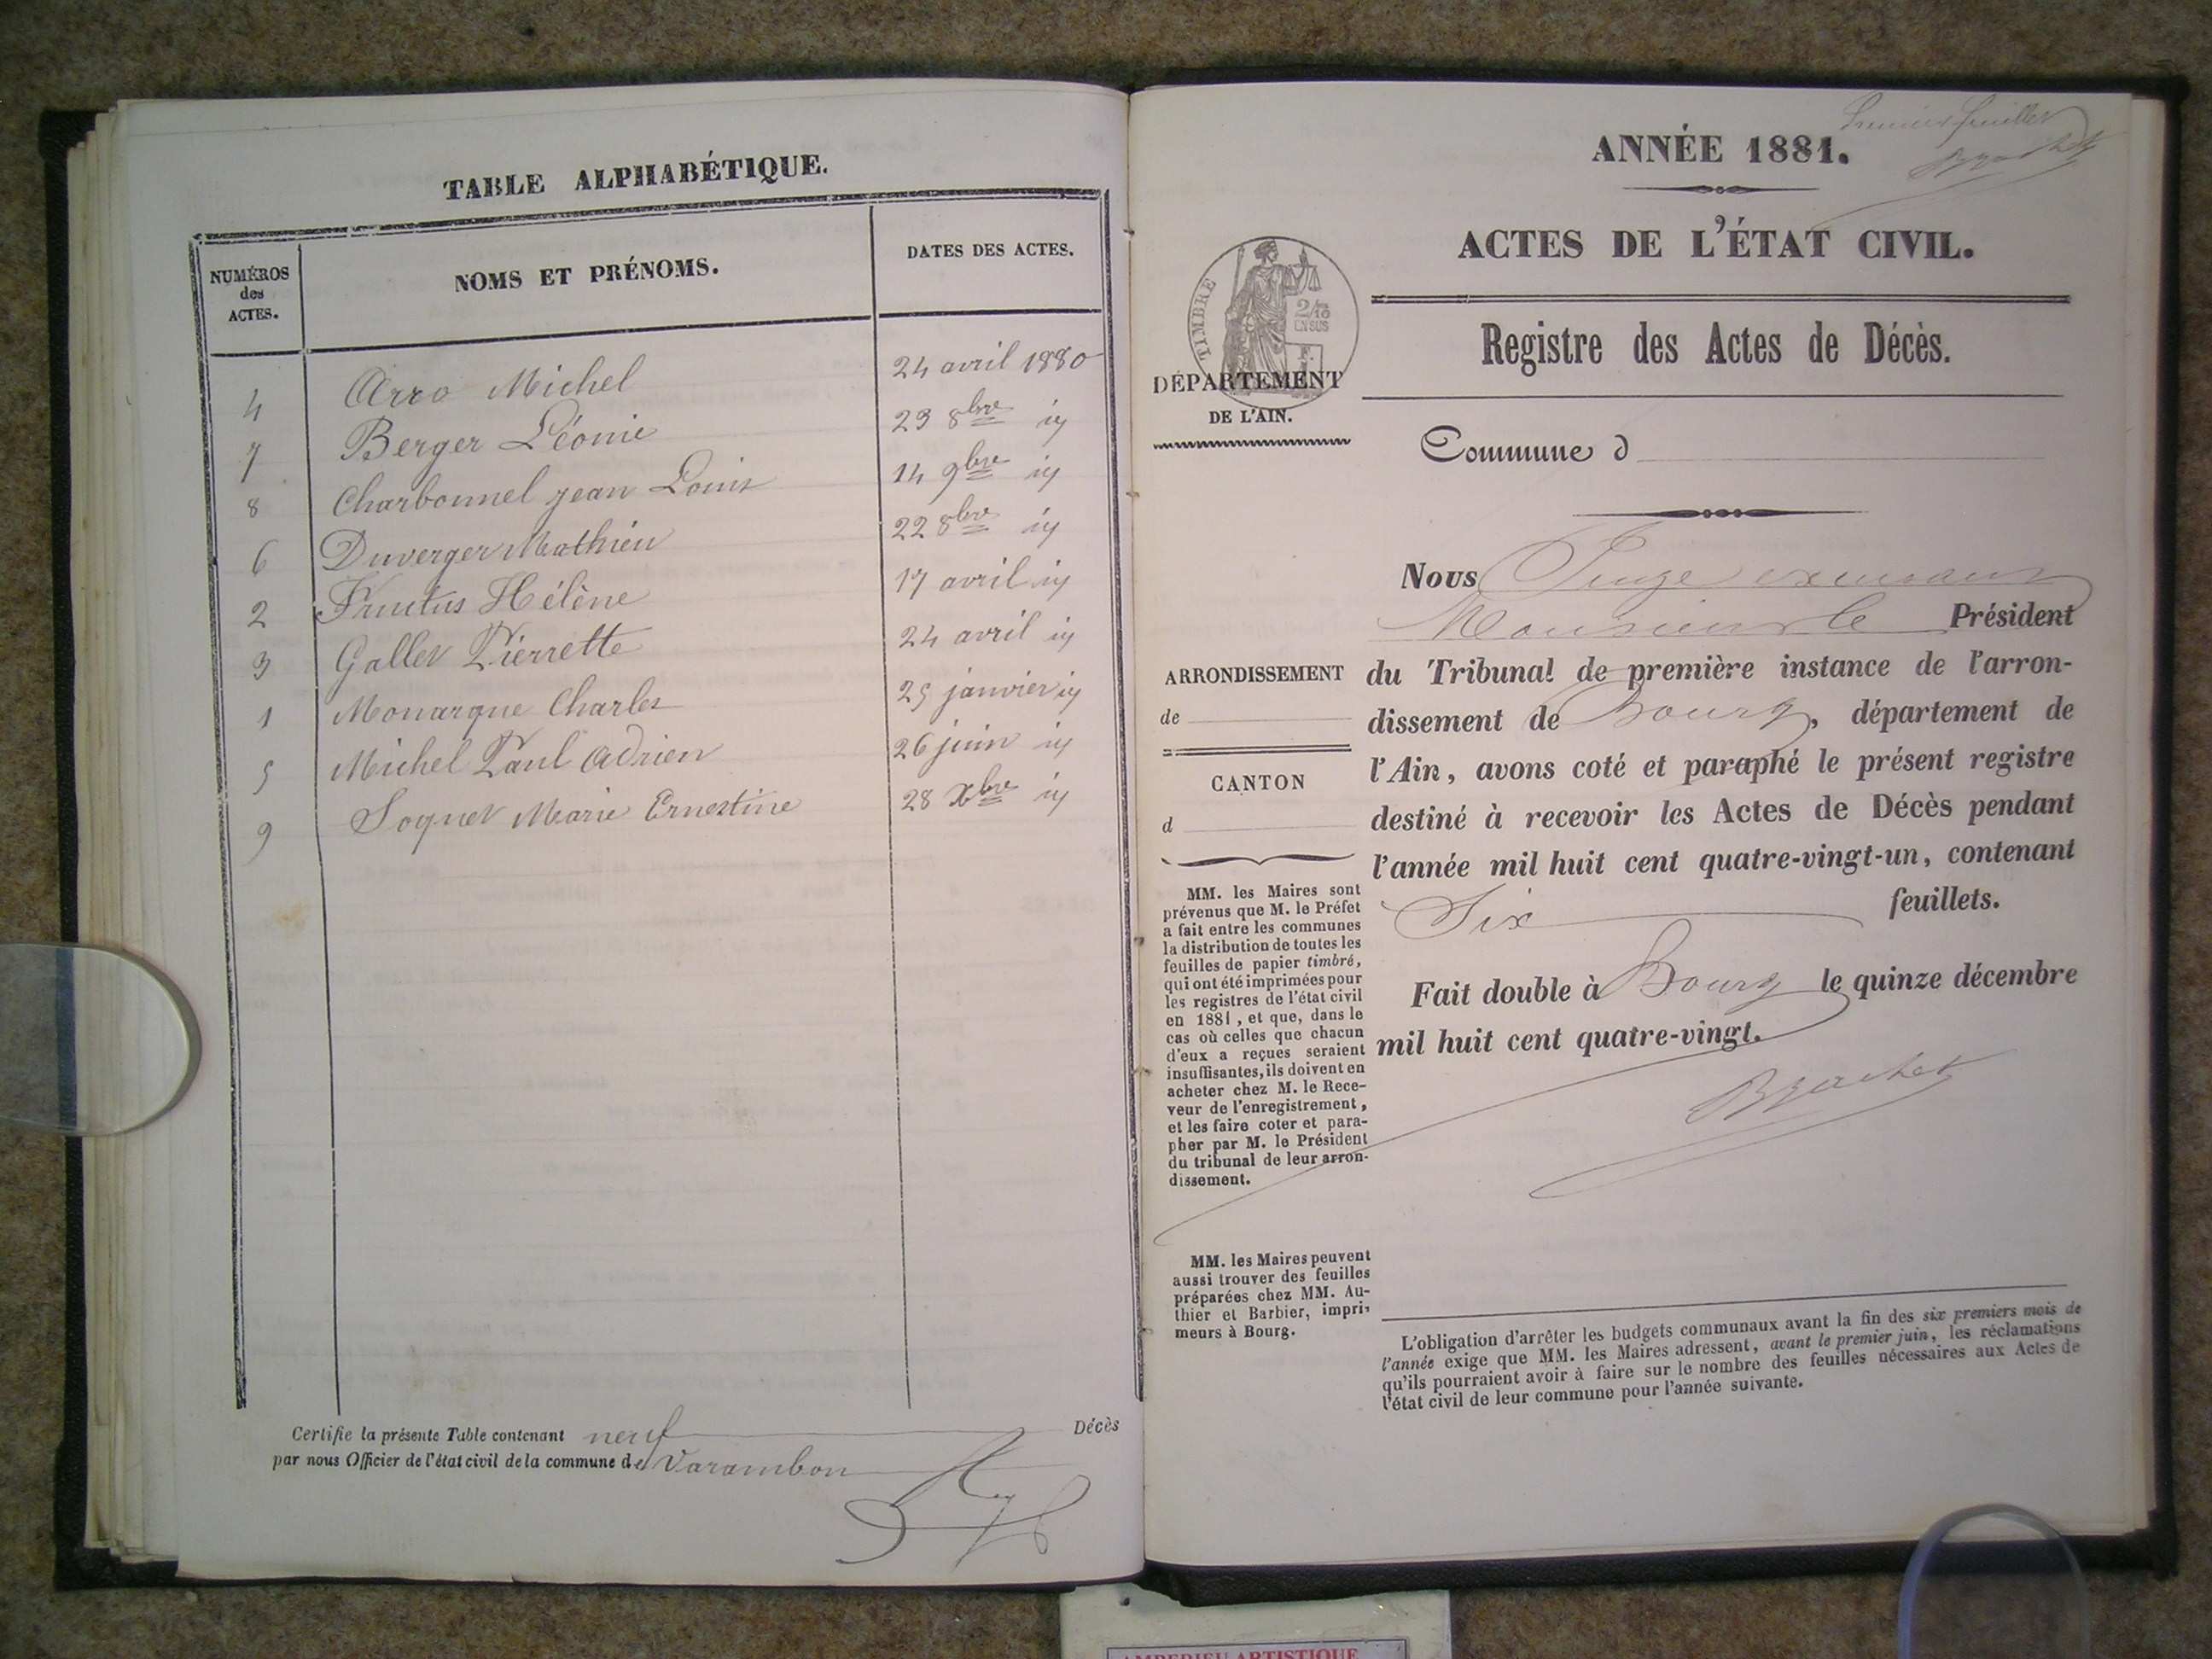 TABLE ALPHABÉTIQUE.
NUMÉROS
des
ACTES.
NOMS ET PRÉNOMS.
DATES DES ACTES.
4 Arro Michel 24 avril 1880
7 Berger Léonie 23 8bre id
8 Charbonnel jean Louis 14 9bre id
6 Duverger Mathieu 22 8bre id
2 Fructus Hélène 17 avril id
3 Gallet Pierrette 24 avril id
1 Monarque Charles 25 janvier id
5 Michel Paul Adrien 26 juin id
9 Soquet Marie Ernestine 28 Xbre id
Certifie la présente Table contenant neuf Décès
par nous Officier de l'état civil de la commune de Varambon
Premier feuillet
Brachet
ANNÉE 1881.
ACTES DE L'ÉTAT CIVIL.
Registre des Actes de Décès.
TIMBRE
2/10
EN SUS
DÉPARTEMENT
DE L'AIN.
Commune d
Nous Juge
Monsieur le Président
du Tribunal de première instance de l'arron-
dissement de Bourg, département de
l'Ain, avons coté et paraphé le présent registre
destiné à recevoir les Actes de Décès pendant
l'année mil huit cent quatre-vingt-un, contenant
Six feuillets.
Fait double à Bourg le quinze décembre
mil huit cent quatre-vingt.
Brachet
ARRONDISSEMENT
de
CANTON
d
MM. les Maires sont
prévenus que M. le Préfet
a fait entre les communes
la distribution de toutes les
feuilles de papier timbré,
qui ont été imprimées pour
les registres de l'état civil
en 1881, et que, dans le
cas où celles que chacun
d'eux a reçues seraient
insuffisantes, ils doivent en
acheter chez M. le Rece-
veur de l'enregistrement,
et les faire coter et para-
pher par M. le Président
du tribunal de leur arron-
dissement.
MM. les Maires peuvent
aussi trouver des feuilles
préparées chez MM. Au-
thier et Barbier, impri-
meurs à Bourg.
L'obligation d'arrêter les budgets communaux avant la fin des six premiers mois de
l'année exige que MM. les Maires adressent, avant le premier juin, les réclamations
qu'ils pourraient avoir à faire sur le nombre des feuilles nécessaires aux Actes de
l'état civil de leur commune pour l'année suivante.
AMBERIEU ARTISTIQUE